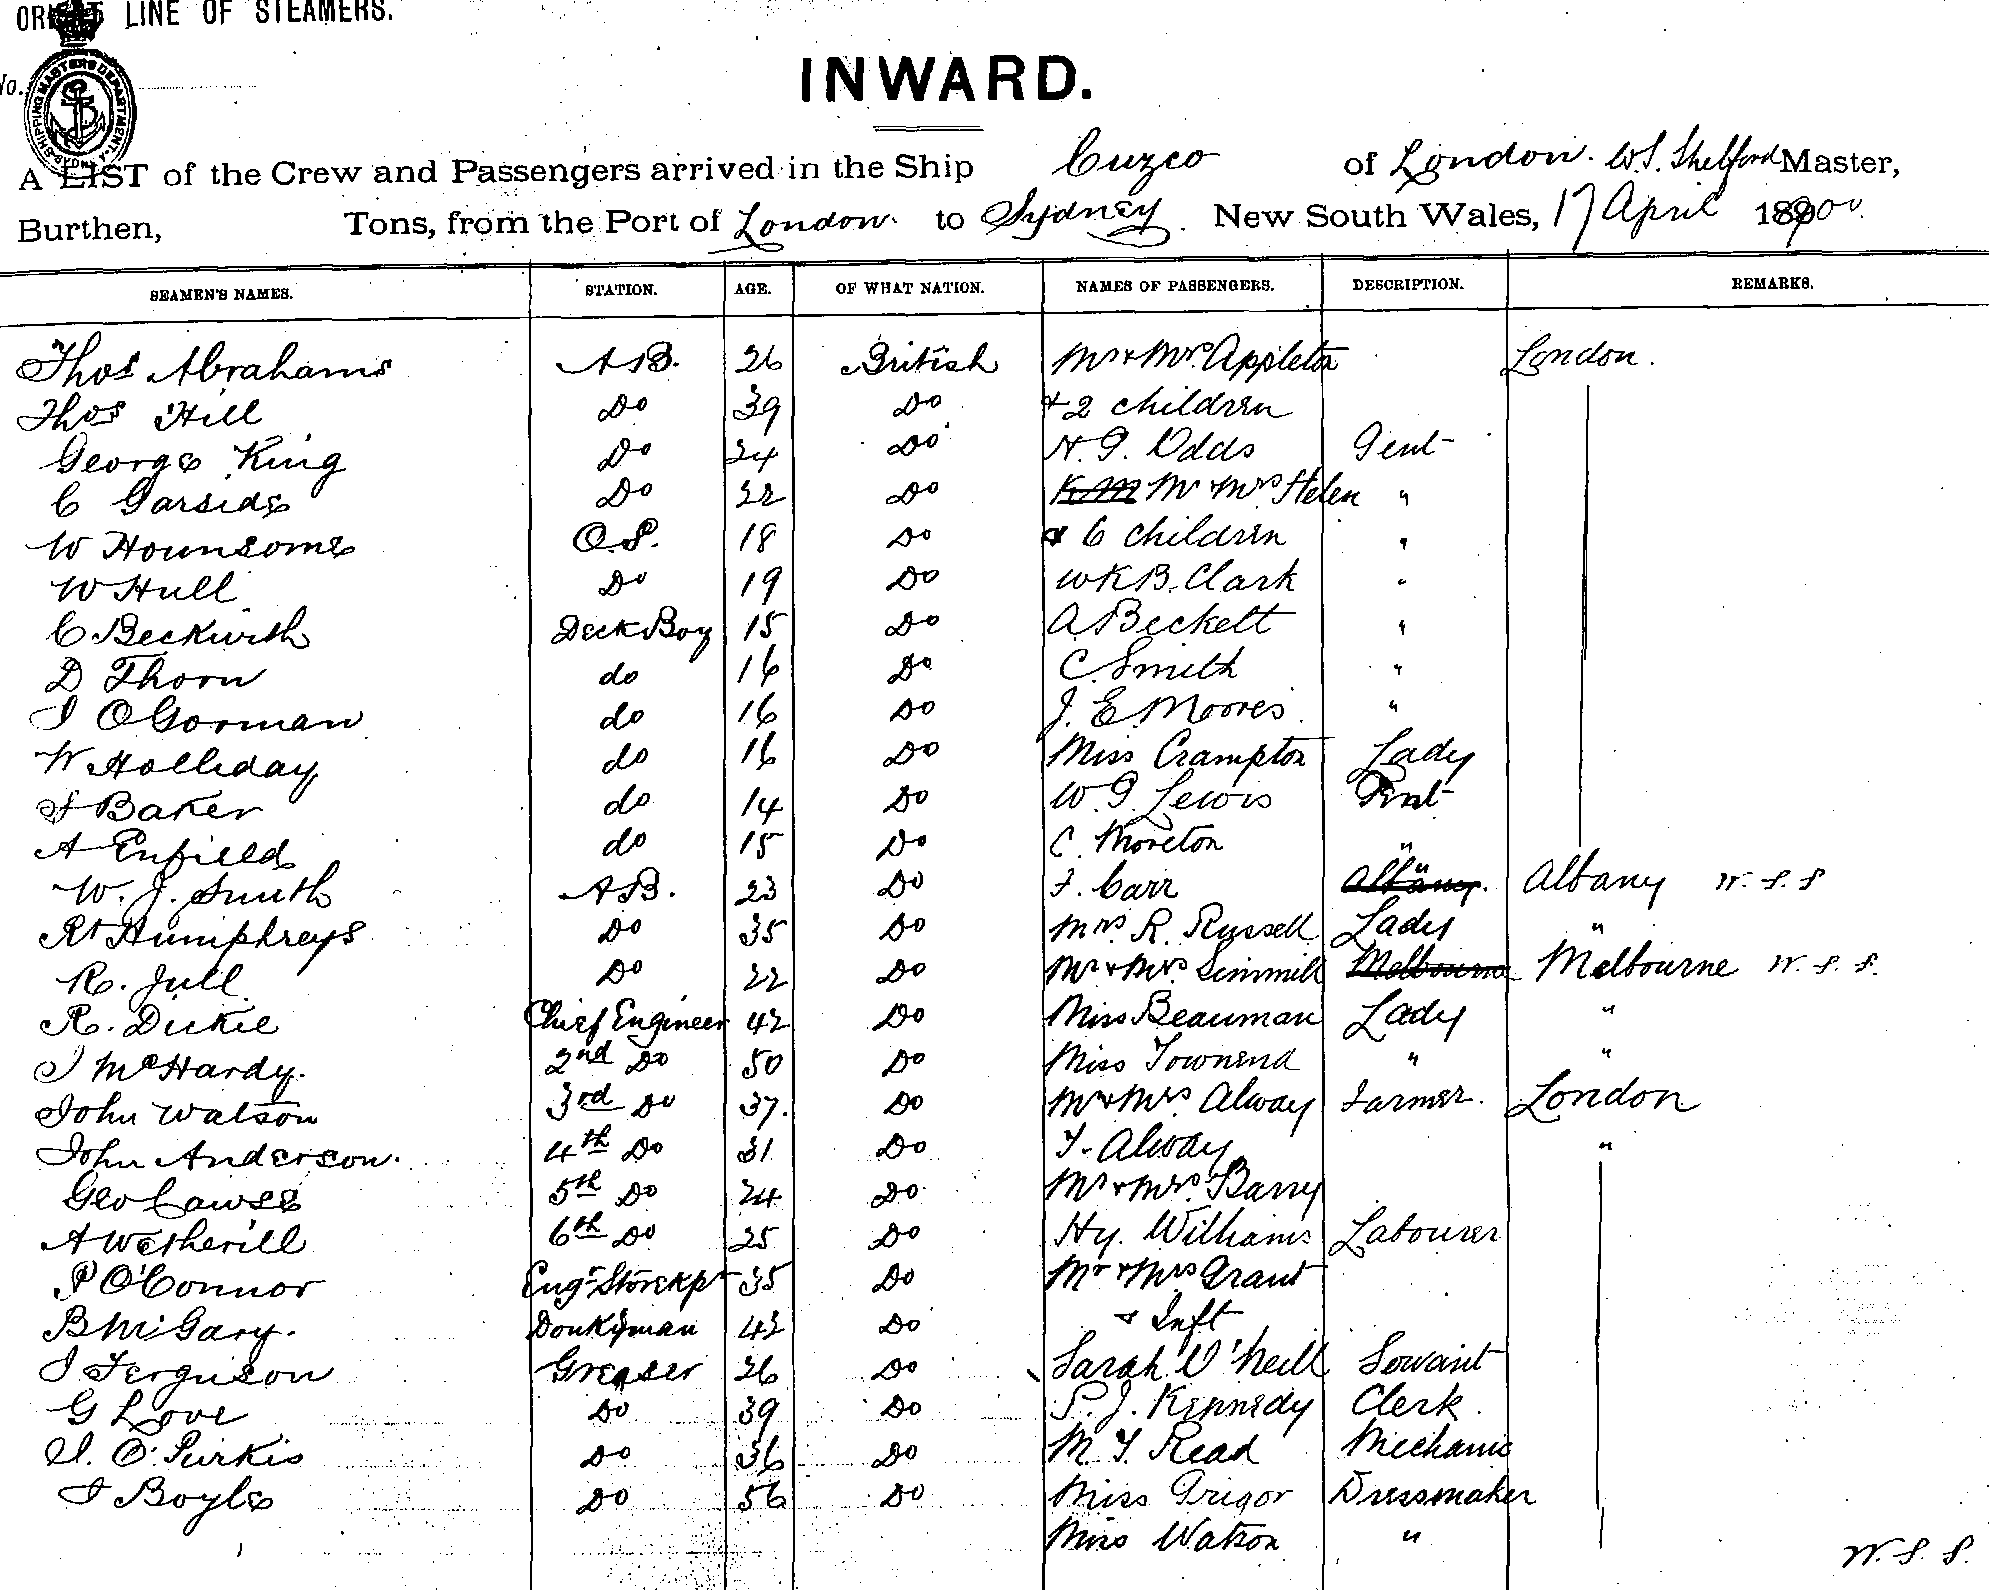 ORIENT LINE OF STEAMERS.
No.
SHIPPING MASTERS DEPARTMENT SYDNEY
INWARD.
A LIST of the Crew and Passengers arrived in the Ship Cuzco of London. W.S. Shelford Master,
Burthen, Tons, from the Port of London. to Sydney. New South Wales, 17 April 1900.
SEAMEN'S NAMES. STATION. AGE. OF WHAT NATION. NAMES OF PASSENGERS. DESCRIPTION. REMARKS.
Thos Abrahams A B. 26 British Mr & Mrs Appleton London.
Thos Hill Do 39 Do + 2 children
George King Do 24 Do H. G. Odds Gent
C Garside Do 22 Do Mr & Mrs Helen "
W Hounsome O.S. 18 Do & 6 children "
W Hull Do 19 Do W K B. Clark "
C Beckwith Deck Boy 15 Do A Beckett "
D Thorn do 16 Do C. Smith "
J O Gorman do 16 Do J. E. Moores "
W Holliday do 16 Do Miss Crampton Lady
J Baker do 14 Do W. G. Lewis Gent
A Enfield do 15 Do C. Moreton "
W. J. Smith A B. 23 Do F. Carr Albany. " Albany W. S. S
Rt Humphreys Do 35 Do Mrs R. Russell Lady "
R. Jull Do 22 Do Mr & Mrs Simmill Melbourne Melbourne W. S. S.
R. Dickie Chief Engineer 42 Do Miss Beauman Lady "
J McHardy. 2nd Do 50 Do Miss Townend " "
John Watson 3rd Do 37. Do Mr & Mrs Alway Farmer. London
John Anderson. 4th Do 31 Do T. Alway "
Geo Cawse 5th Do 24 Do Mr & Mrs Barry
A Wetherill 6th Do 25 Do Hy. Williams Labourer
P O'Connor Engr Storekpr 35 Do Mr & Mrs Grant
B McGary. Donkyman 43 Do & Inft
J Ferguson Greaser 26 Do Sarah O'Neill Servant
G Love Do 39 Do P. J. Kennedy Clerk.
J. O. Purkis Do 36 Do M. T. Read Mechanic
J Boyle Do 56 Do Miss Grigor Dressmaker
Miss Watson "
W. S. S.